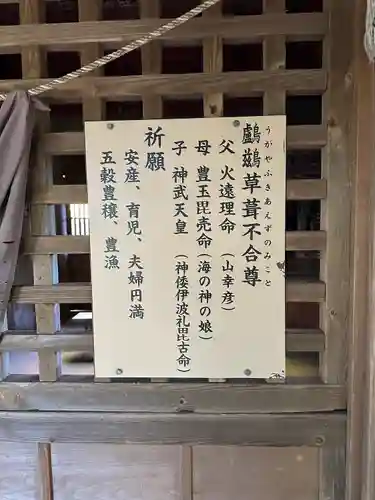 鸕鷀草葺不合尊
うがやふきあえずのみこと
父 火遠理命（山幸彦）
母 豊玉毘売命（海の神の娘）
子 神武天皇（神倭伊波礼毘古命）
祈願
安産、育児、夫婦円満
五穀豊穣、豊漁